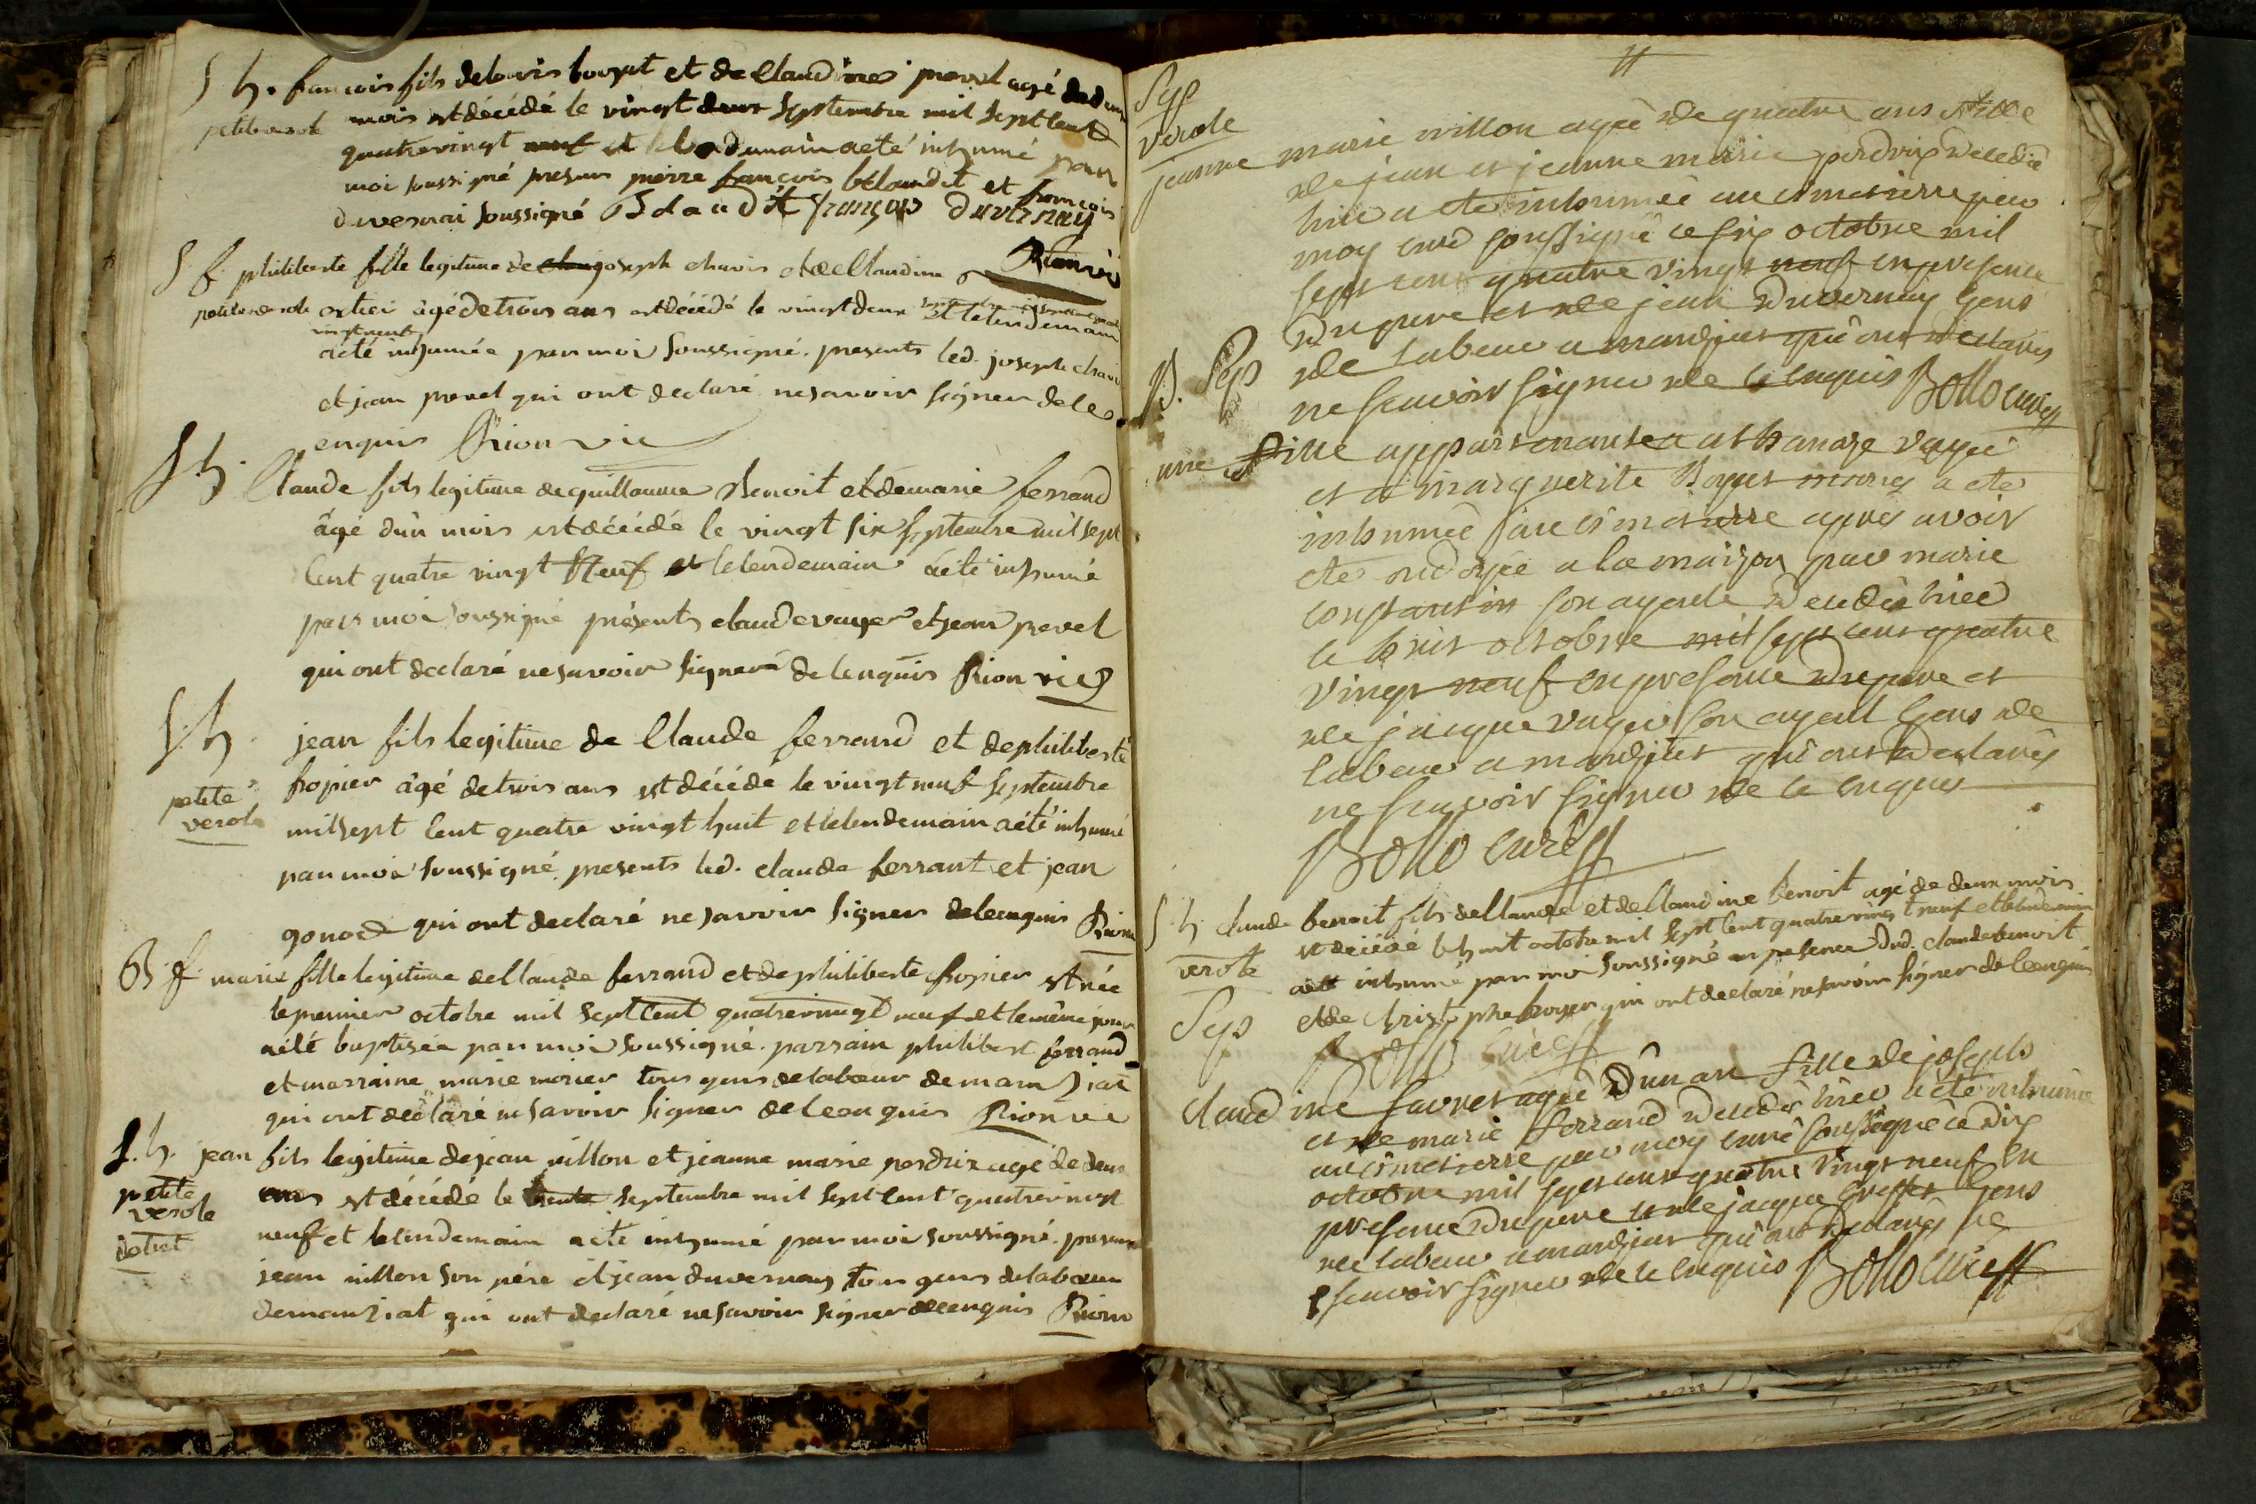 S h. francois fils de louis et de Claudine prevel agé de deux
petite verole mois est décédé le vingt deux septembre mil sept cent
quatre vingt neuf et le lendemain a eté inhumé par
moi soussigné presens pierre francois blaudit et francois
duvernai soussigné Blaudit françois duvernay
Rionvie
S f philiberte fille legitime de joseph chavis et de Claudine
petite verole ortier âgé de trois ans est décédé le vingt deux septembre et le lendemain
a eté inhumée par moi soussigné. presents led. joseph
et jean prevel qui ont declaré ne savoir signer de ce
enquis Rionvie
S h. Claude fils legitime de guillaume Benoit et de marie ferrand
âgé d'un mois est décédé le vingt six septembre mil sept
cent quatre vingt Neuf et le lendemain a été inhumé
par moi soussigné présents claude vayer et jean prevel
qui ont declaré ne savoir signer de ce enquis Rionvie
S. h. jean fils legitime de Claude ferrand et de philiberte
fropier âgé de trois ans est décédé le vingt neuf septembre
petite verole mil sept cent quatre vingt huit et le lendemain a été inhumé
par moi soussigné. presents led. claude ferrant et jean
gonod qui ont declaré ne savoir signer de ce enquis Rion
B. f. marie fille legitime de Claude ferrand et de philiberte fropier est née
le premier octobre mil sept cent quatre vingt neuf et le même jour
a été baptisée par moi soussigné. parrain philibert ferrand
et marraine marie morier tous gens de labeur de manziat
qui ont déclaré ne savoir signer de ce enquis Rionvie
S. h. jean fils legitime de jean villon et jeanne marie perdrix agé de deux
petite verole ans est décédé le trente septembre mil sept cent quatre vingt
neuf et le lendemain a été inhumé par moi soussigné. presens
jean villon son père et jean duvernay tous gens de labeur
de manziat qui ont declaré ne savoir signer de ce enquis Rion
Sep
verole
jeanne marie villon agée de quatre ans fille
de jean et jeanne marie perdrix decedée
hier a ete inhumée au cimetierre par
moy curé soussigné ce six octobre mil
sept cent quatre vingt neuf en presence
du pere et de jean duvernay gens
de labeur a mandziat qui ont declarés
ne scavoir signer de ce enquis Bollo curé
B. Sep
une fille appartenante a athanaze vayer
et a marguerite Boyer mariés a ete
inhumée au cimetierre apres avoir
ete ondoyée a la maison par marie
constantin son ayeule decedée hier
ce huit octobre mil sept cent quatre
vingt neuf en presence du pere et
de jacque vayer son ayeul gens de
labeur a mandziat qui ont declarés
ne scavoir signer de ce enquis
Bollo curé
S h claude benoit fils de Claude et de Claudine benoit agé de deux mois
est décédé le huit octobre mil sept cent quatre vingt neuf et le lendemain
verole a été inhumé par moi soussigné en presence dud. claude benoit
et de Christophe boyer qui ont declaré ne savoir signer de ce enquis
Bollo curé
Sep
Claudine favret agée d'un an fille de joseph
et de marie ferrand decedée hier a ete inhumée
au cimetierre par moy curé soussigné ce dix
octobre mil sept cent quatre vingt neuf en
presence du pere et de jacque greffet gens
de labeur a mandziat qui ont declarés ne
scavoir signer de ce enquis Bollo curé